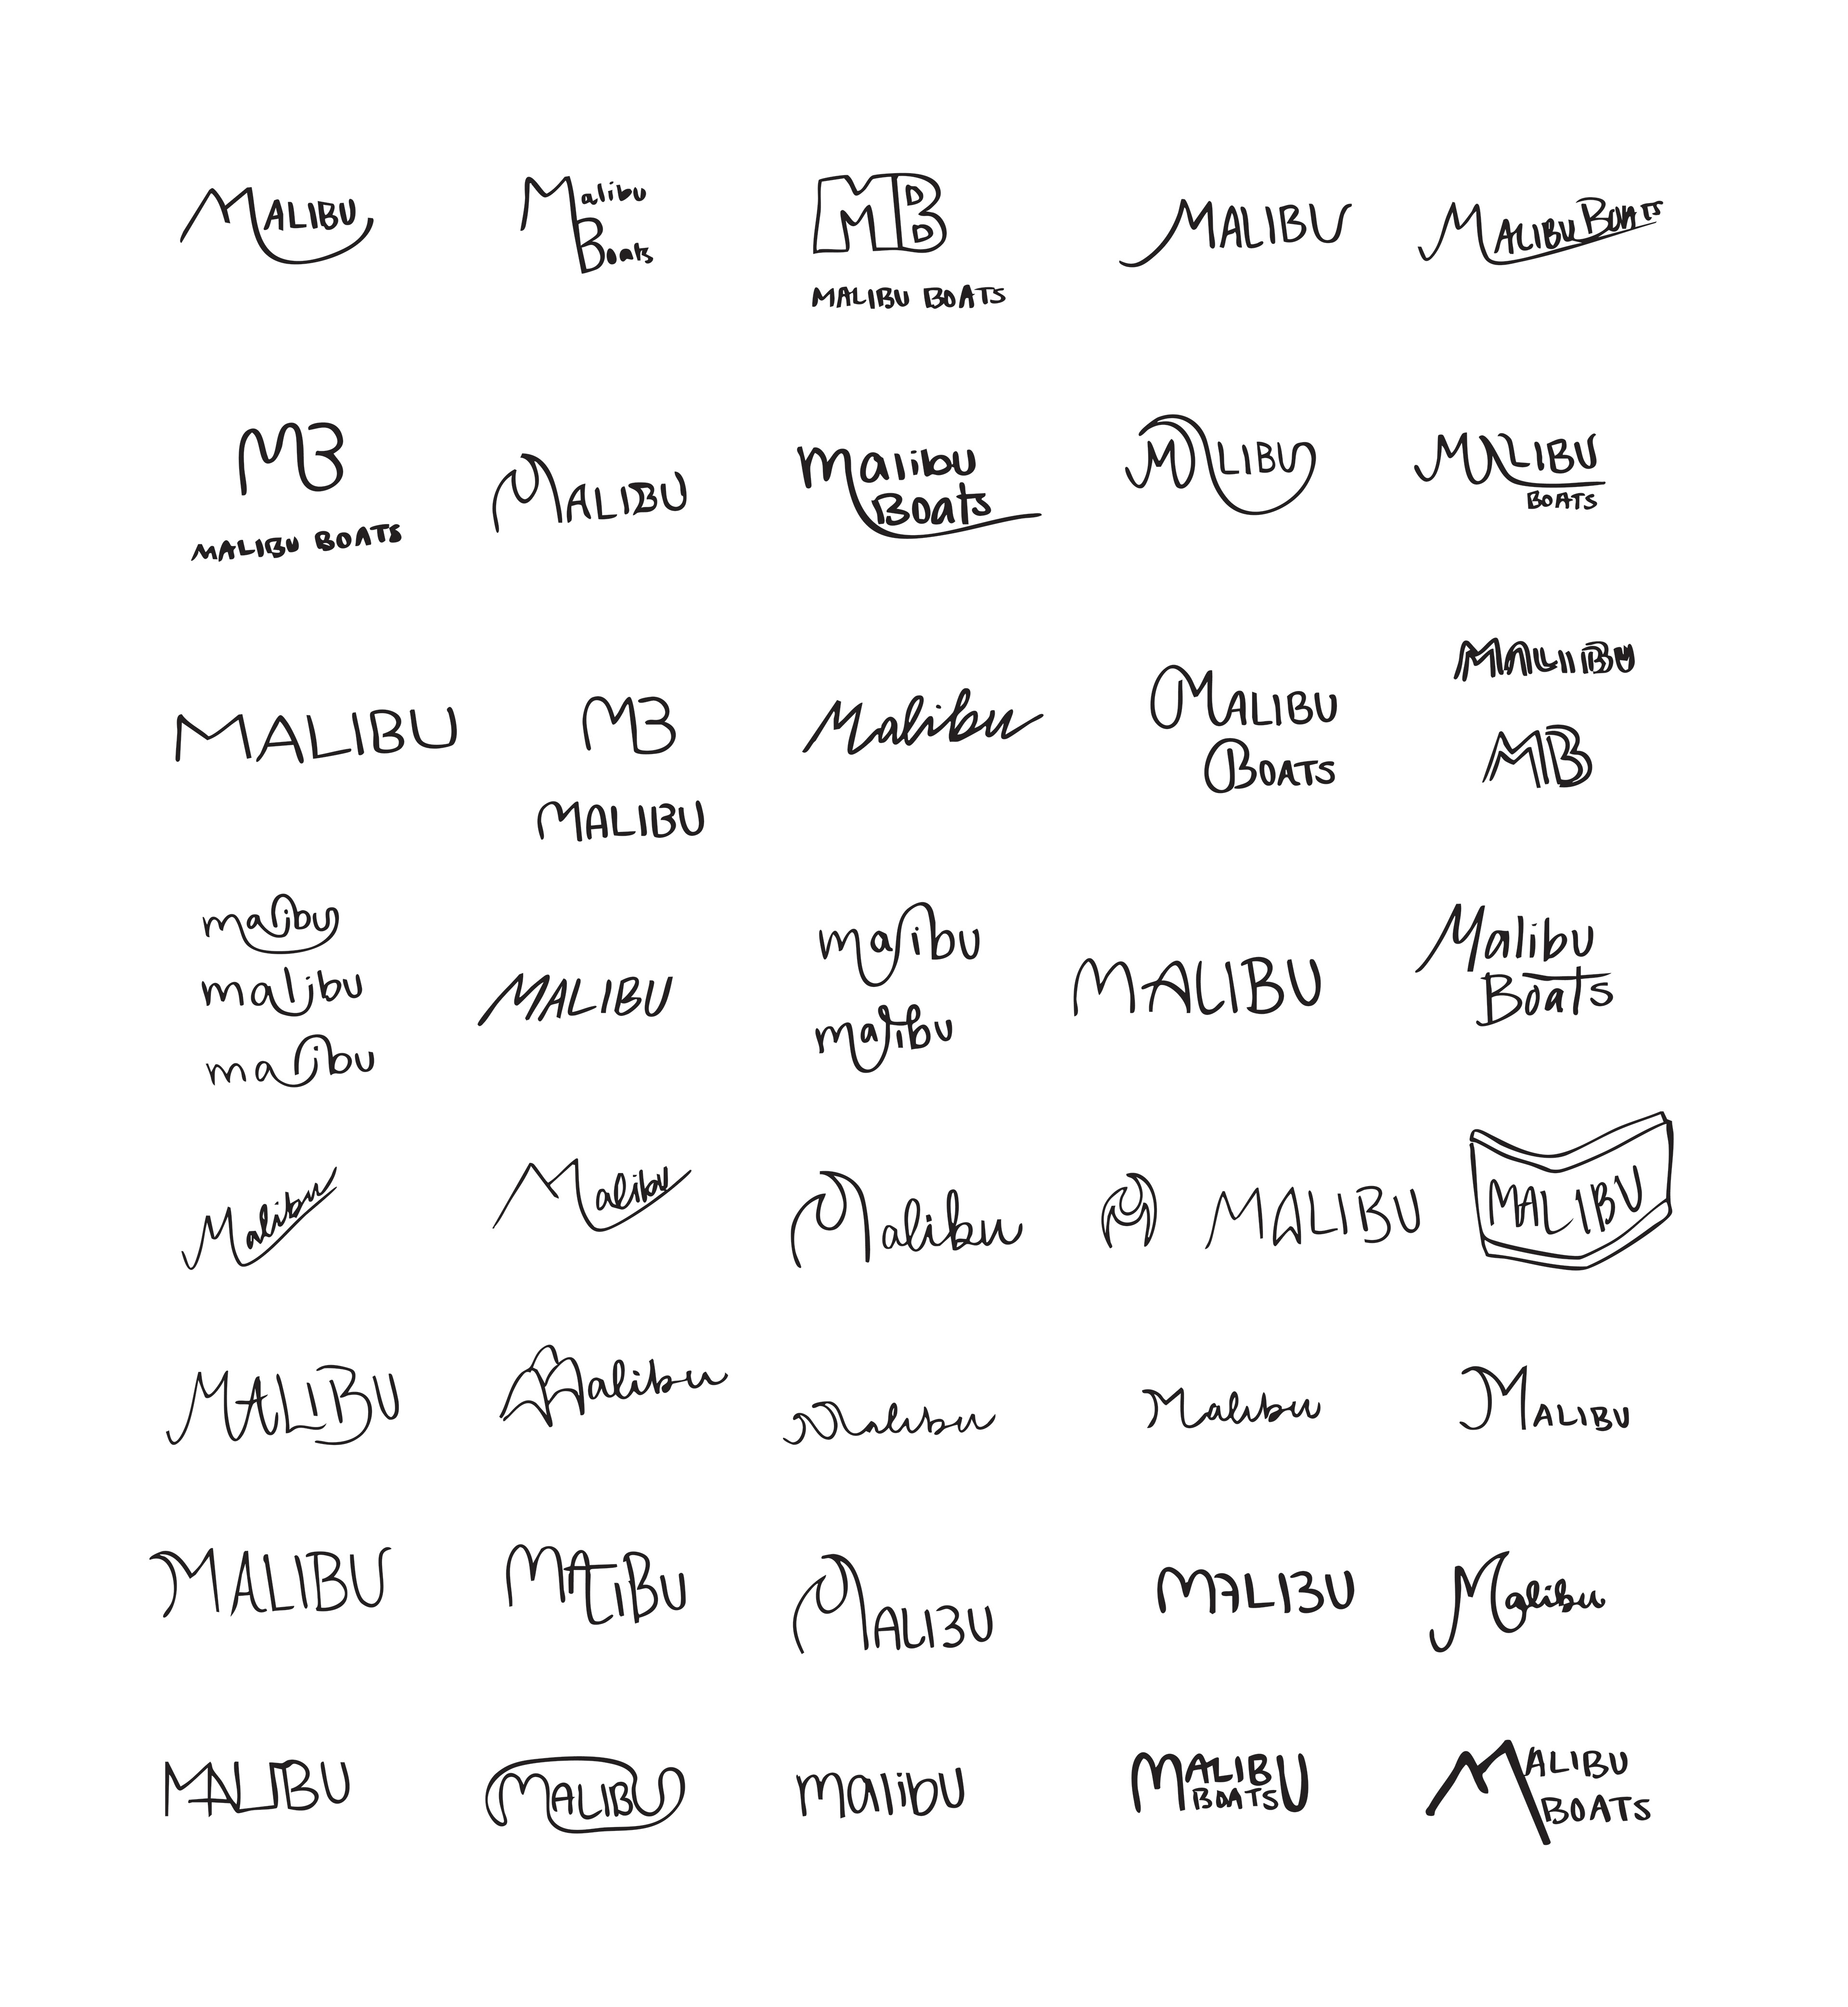 MALIBU
Malibu
Boats
MB
MALIBU BOATS
MALIBU
MALIBU BOATS
MB
MALIBU BOATS
MALIBU
Malibu
Boats
MALIBU
MALIBU
BOATS
MALIBU
MB
MALIBU
Malibu
MALIBU
BOATS
MALIBU
MB
malibu
malibu
malibu
MALIBU
malibu
malibu
MALIBU
Malibu
Boats
Malibu
Malibu
Malibu
MALIBU
MALIBU
MALIBU
Malibu
Malibu
Malibu
MALIBU
MALIBU
MALIBU
MALIBU
MALIBU
Malibu
MALIBU
MALIBU
malibu
MALIBU
BOATS
MALIBU
BOATS